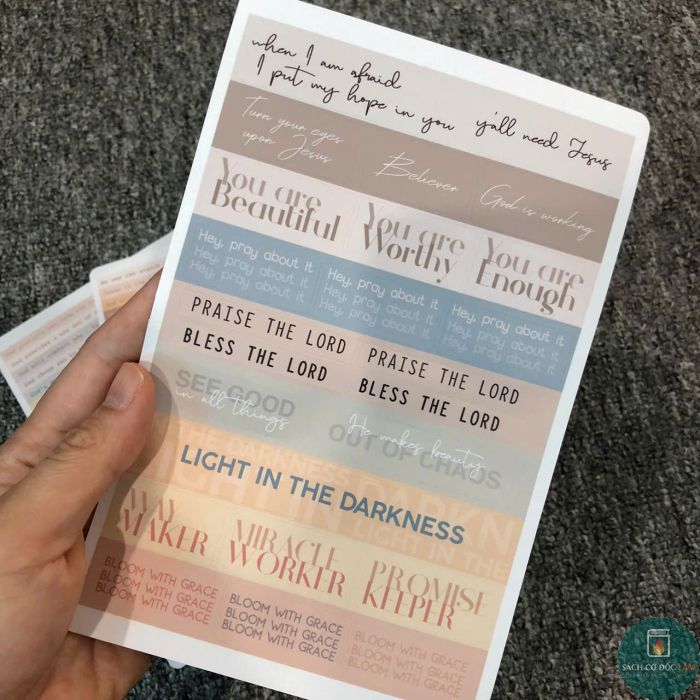 when I am afraid
I put my hope in you
y'all need Jesus
Turn your eyes
upon Jesus
Believer
God is working
You are
Beautiful
You are
Worthy
You are
Enough
Hey, pray about it
Hey, pray about it
Hey, pray about it
Hey, pray about it
Hey, pray about it
Hey, pray about it
Hey, pray about it
Hey, pray about it
Hey, pray about it
PRAISE THE LORD
BLESS THE LORD
PRAISE THE LORD
BLESS THE LORD
SEE GOOD
in all things
He makes beauty
OUT OF CHAOS
LIGHT IN THE DARKNESS
WAY
MAKER
MIRACLE
WORKER
PROMISE
KEEPER
BLOOM WITH GRACE
BLOOM WITH GRACE
BLOOM WITH GRACE
BLOOM WITH GRACE
BLOOM WITH GRACE
BLOOM WITH GRACE
BLOOM WITH GRACE
BLOOM WITH GRACE
BLOOM WITH GRACE
SÁCH CƠ ĐỐC LÀM